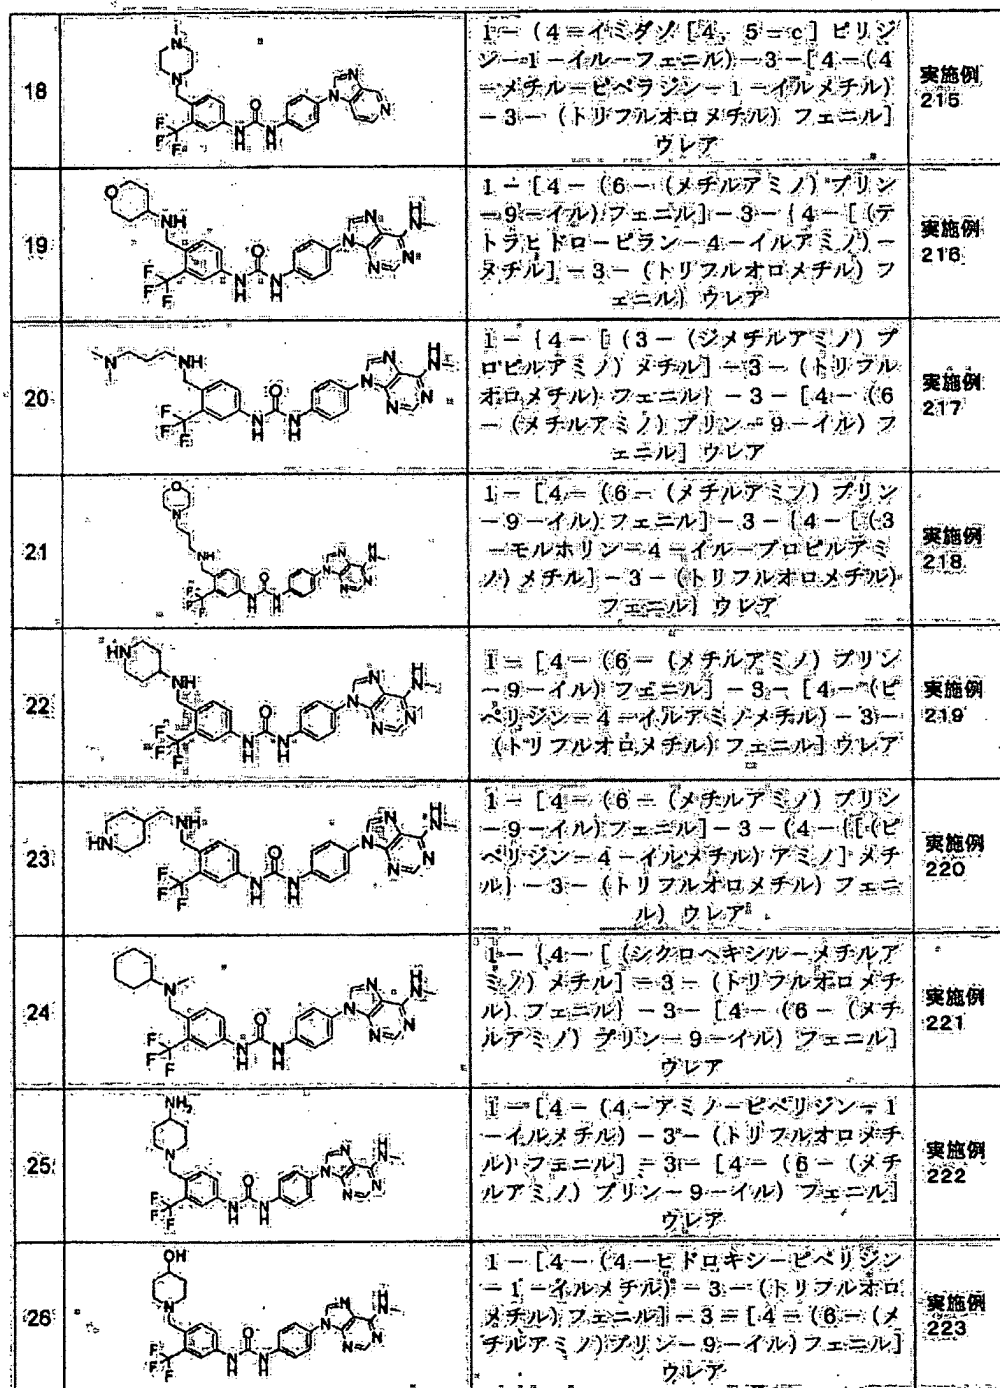 18
1－（4－イミダゾ［4，5－c］ピリジ
ン－1－イル－フェニル）－3－［4－（4
－メチル－ピペラジン－1－イルメチル）
－3－（トリフルオロメチル）フェニル］
ウレア
実施例
215
19
1－［4－（6－（メチルアミノ）プリン
－9－イル）フェニル］－3－｛4－［（テ
トラヒドロ－ピラン－4－イルアミノ）－
メチル］－3－（トリフルオロメチル）フ
ェニル｝ウレア
実施例
216
20
1－｛4－［（3－（ジメチルアミノ）プ
ロピルアミノ）メチル］－3－（トリフル
オロメチル）フェニル｝－3－［4－（6
－（メチルアミノ）プリン－9－イル）フ
ェニル］ウレア
実施例
217
21
1－［4－（6－（メチルアミノ）プリン
－9－イル）フェニル］－3－｛4－［（3
－モルホリン－4－イル－プロピルアミ
ノ）メチル］－3－（トリフルオロメチル）
フェニル｝ウレア
実施例
218
22
1－［4－（6－（メチルアミノ）プリン
－9－イル）フェニル］－3－［4－（ピ
ペリジン－4－イルアミノメチル）－3－
（トリフルオロメチル）フェニル］ウレア
実施例
219
23
1－［4－（6－（メチルアミノ）プリン
－9－イル）フェニル］－3－（4－｛［（ピ
ペリジン－4－イルメチル）アミノ］メチ
ル｝－3－（トリフルオロメチル）フェニ
ル）ウレア
実施例
220
24
1－｛4－［（シクロヘキシル－メチルア
ミノ）メチル］－3－（トリフルオロメチ
ル）フェニル｝－3－［4－（6－（メチ
ルアミノ）プリン－9－イル）フェニル］
ウレア
実施例
221
25
1－［4－（4－アミノ－ピペリジン－1
－イルメチル）－3－（トリフルオロメチ
ル）フェニル］－3－［4－（6－（メチ
ルアミノ）プリン－9－イル）フェニル］
ウレア
実施例
222
26
1－［4－（4－ヒドロキシ－ピペリジン
－1－イルメチル）－3－（トリフルオロ
メチル）フェニル］－3－［4－（6－（メ
チルアミノ）プリン－9－イル）フェニル］
ウレア
実施例
223